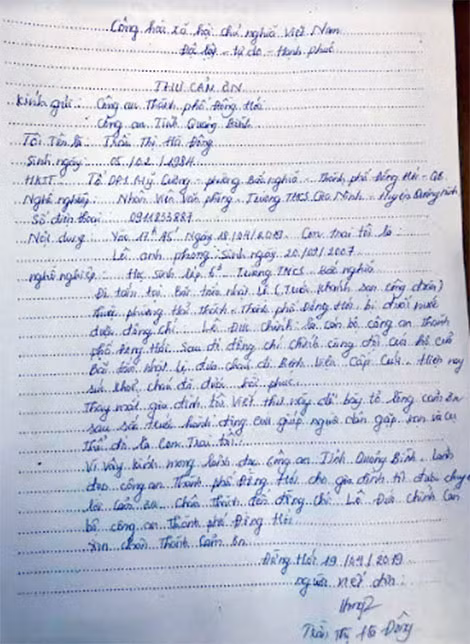 Cộng hòa xã hội chủ nghĩa Việt Nam
Độc lập - tự do - Hạnh phúc
THƯ CẢM ƠN
Kính gửi: Công an Thành phố Đồng Hới
Công an Tỉnh Quảng Bình
Tôi Tên là: Trần Thị Hà Đông
Sinh ngày: 05/02/1984
HKTT: Tổ DP1 Mỹ Cương - phường Bắc nghĩa - Thành phố Đồng Hới - QB
Nghề nghiệp: Nhân Viên Văn phòng - Trường THCS
Số điện thoại: 0911233887
Nội dung: Vào 17h 45' Ngày 18/04/2019 Con trai tôi là:
Lê anh phong: Sinh ngày 20/09/2007
nghề nghiệp: Học sinh lớp 6 Trường THCS Bắc nghĩa
Đi tắm tại Bãi tắm nhật Lệ (Trước khách sạn công đoàn)
Thuộc phường Hải Thành - Thành phố Đồng Hới bị đuối nước
được đồng chí Lê Đức Chính là cán bộ công an Thành
phố Đồng Hới. Sau đó đồng chí Chính cùng đội cứu hộ của
Bãi tắm nhật Lệ đưa cháu đi Bệnh Viện Cấp Cứu. Hiện nay
sức khỏe cháu đã được hồi phục.
Thay mặt gia đình tôi Viết thư này để bày tỏ lòng cảm ơn
sâu sắc trước hành động cứu giúp người dân gặp nạn và cụ
Thể đó là Con Trai tôi.
Vì vậy kính mong lãnh đạo Công an Tỉnh Quảng Bình, lãnh
đạo công an Thành phố Đồng Hới cho gia đình tôi được chuyển
lời cảm ơn chân thành đến đồng chí Lê Đức Chính Cán
bộ công an Thành phố Đồng Hới
Xin chân Thành Cảm ơn
Đồng Hới 19/04/2019
người viết đơn:
Trần Thị Hà Đông